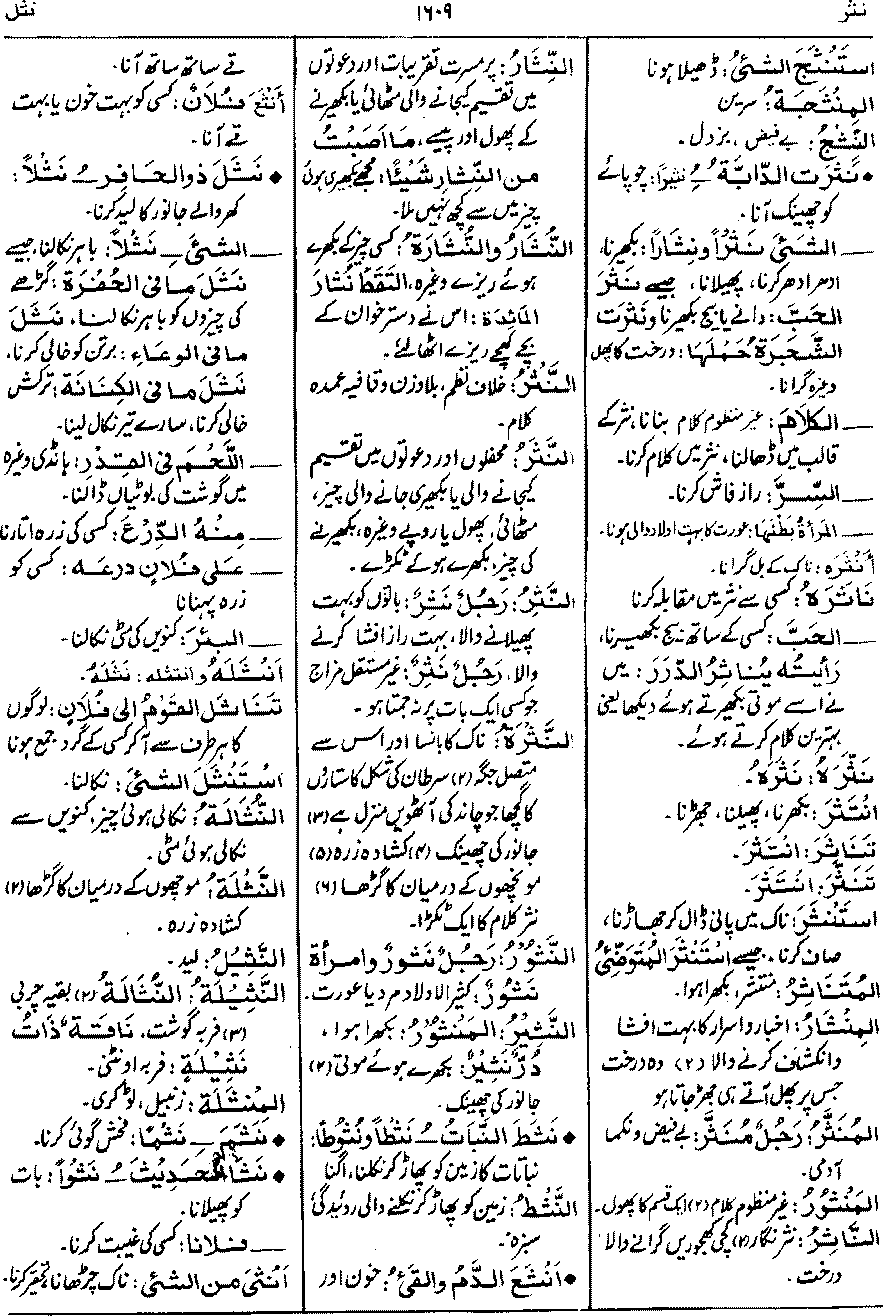 نثر
۱۶۰۹
نثل
اسْتَنْثَجَ الشَّيْءُ: ڈھیلا ہونا
المِنْثَجَةُ: سرین
النَّثِجُ: بے فیض، بزدل۔
• نَثَرَتِ الدَّابَّةُ ـُ نَثِيرًا: چوپائے
کو چھینک آنا۔
ـــ الشَّيْءَ نَثْرًا ونِثَارًا: بکھیرنا،
ادھر ادھر کرنا، پھیلانا، جیسے نَثَرَ
الحَبَّ: دانے یا بیج بکھیرنا ونَثَرَتِ
الشَّجَرَةُ حَمْلَهَا: درخت کا پھل
وغیرہ گرانا۔
ـــ الكَلَامَ: غیر منظوم کلام بنانا، نثر کے
قالب میں ڈھالنا، نثر میں کلام کرنا۔
ـــ السِّرَّ: راز فاش کرنا۔
ـــ المَرْأَةُ بَطْنَهَا: عورت کا بہت اولاد والی ہونا۔
أَنْثَرَهُ: ناک کے بل گرانا۔
نَاثَرَهُ: کسی سے نثر میں مقابلہ کرنا
ـــ الحَبَّ: کسی کے ساتھ بیج بکھیرنا،
رَأَيْتُهُ يُنَاثِرُ الدُّرَرَ: میں
نے اسے موتی بکھیرتے ہوئے دیکھا یعنی
بہترین کلام کرتے ہوئے۔
نَثَّرَهُ: نَثَرَهُ۔
انْتَثَرَ: بکھرنا، پھیلنا، جھڑنا۔
تَنَاثَرَ: انْتَثَرَ۔
تَنَثَّرَ: انْتَثَرَ۔
اسْتَنْثَرَ: ناک میں پانی ڈال کر جھاڑنا،
صاف کرنا، جیسے اسْتَنْثَرَ المُتَوَضِّئُ
المُتَنَاثِرُ: منتشر، بکھرا ہوا۔
المِنْثَارُ: اخبار و اسرار کا بہت افشا
و انکشاف کرنے والا (۲) وہ درخت
جس پر پھل آتے ہی جھڑ جاتا ہو
المُنَثَّرُ: رَجُلٌ مُنَثَّرٌ: بے فیض و نکما
آدمی۔
المَنْثُوْرُ: غیر منظوم کلام (۲) ایک قسم کا پھول۔
النَّاثِرُ: نثر نگار (۲) کچی کھجوریں گرانے والا
درخت۔
النِّثَارُ: پر مسرت تقریبات اور دعوتوں
میں تقسیم کیجانے والی مٹھائی یا بکھیرنے
کے پھول اور پیسے، مَا أَصَبْتُ
مِنَ النِّثَارِ شَيْئًا: مجھے بکھری ہوئی
چیز میں سے کچھ نہیں ملا۔
النُّثَارُ والنُّثَارَةُ: کسی چیز کے بکھرے
ہوئے ریزے وغیرہ، التَقَطَ نُثَارَ
المَائِدَة: اس نے دسترخوان کے
بچے کھچے ریزے اٹھا لئے۔
النَّثْرُ: خلاف نظم، بلا وزن و قافیہ عمدہ
کلام۔
النَّثَرُ: محفلوں اور دعوتوں میں تقسیم
کیجانے والی یا بکھیری جانے والی چیز،
مٹھائی، پھول یا روپے وغیرہ، بکھیرنے
کی چیز، بکھرے ہوئے ٹکڑے۔
النَّثِرُ: رَجُلٌ نَثِرٌ: باتوں کو بہت
پھیلانے والا، بہت راز افشا کرنے
والا، رَجُلٌ نَثِرٌ: غیر مستقل مزاج
جو کسی ایک بات پر نہ جمتا ہو۔
النَّثْرَةُ: ناک کا بانسا اور اس سے
متصل جگہ (۲) سرطان کی شکل کا ستاروں
کا گچھا جو چاند کی آٹھویں منزل ہے (۳)
جانور کی چھینک (۴) کشادہ زرہ (۵)
مونچھوں کے درمیان کا گڑھا (۶)
نثر کلام کا ایک ٹکڑا۔
النَّثُوْرُ: رَجُلٌ نَثُوْرٌ وامرأة
نَثُوْرٌ: کثیر الاولاد مرد یا عورت۔
النَّثِيْرُ: المَنْثُوْرُ: بکھرا ہوا،
دُرٌّ نَثِيْرٌ: بکھرے ہوئے موتی (۲)
جانور کی چھینک۔
• نَثَطَ النَّبَاتُ ـُ نَثْطًا ونُثُوطًا:
نباتات کا زمین کو پھاڑ کر نکلنا، اگنا
النَّثْطُ: زمین کو پھاڑ کر نکلنے والی روئیدگی
سبزہ۔
• أَنْثَعَ الدَّمُ والقَيْءُ: خون اور
قے ساتھ ساتھ آنا۔
أَنْثَعَ فُلَانٌ: کسی کو بہت خون یا بہت
قے آنا۔
• نَثَلَ ذو الحَافِرِ ـُ نَثْلًا:
کھر والے جانور کا لید کرنا۔
ـــ الشَّيْءَ ـِ نَثْلًا: باہر نکالنا، جیسے
نَثَلَ مَا فِي الحُفْرَةِ: گڑھے
کی چیزوں کو باہر نکالنا، نَثَلَ
مَا فِي الوِعَاءِ: برتن کو خالی کرنا،
نَثَلَ مَا فِي الكِنَانَةِ: ترکش
خالی کرنا، سارے تیر نکال لینا۔
ـــ اللَّحْمَ فِي القِدْرِ: ہانڈی وغیرہ
میں گوشت کی بوٹیاں ڈالنا۔
ـــ مِنْهُ الدِّرْعَ: کسی کی زرہ اتارنا
ـــ عَلَى فُلَانٍ دِرْعَهُ: کسی کو
زرہ پہنانا
ـــ البِئْرَ: کنویں کی مٹی نکالنا۔
أَنْثَلَهُ وانتثله: نَثَلَهُ۔
تَنَاثَلَ القَوْمُ إِلَى فُلَانٍ: لوگوں
کا ہر طرف سے آکر کسی کے گرد جمع ہونا
اسْتَنْثَلَ الشَّيْءَ: نکالنا۔
النُّثَالَةُ: نکالی ہوئی چیز، کنویں سے
نکالی ہوئی مٹی۔
النَّثْلَةُ: مونچھوں کے درمیان کا گڑھا (۲)
کشادہ زرہ۔
النَّثِيْلُ: لید۔
النَّثِيْلَةُ: النُّثَالَةُ (۲) بقیہ چربی
(۳) فربہ گوشت، نَاقَةٌ ذَاتُ
نَثِيْلَةٍ: فربہ اونٹنی۔
المِنْثَلَةُ: زنبیل، ٹوکری۔
• نَثَمَ ـِ نَثْمًا: فحش گوئی کرنا۔
• نَثَا الحَدِيثَ ـُ نَثْوًا: بات
کو پھیلانا۔
ـــ فُلَانًا: کسی کی غیبت کرنا۔
أَنْثَى مِنَ الشَّيْءِ: ناک چڑھانا، تحقیر کرنا۔